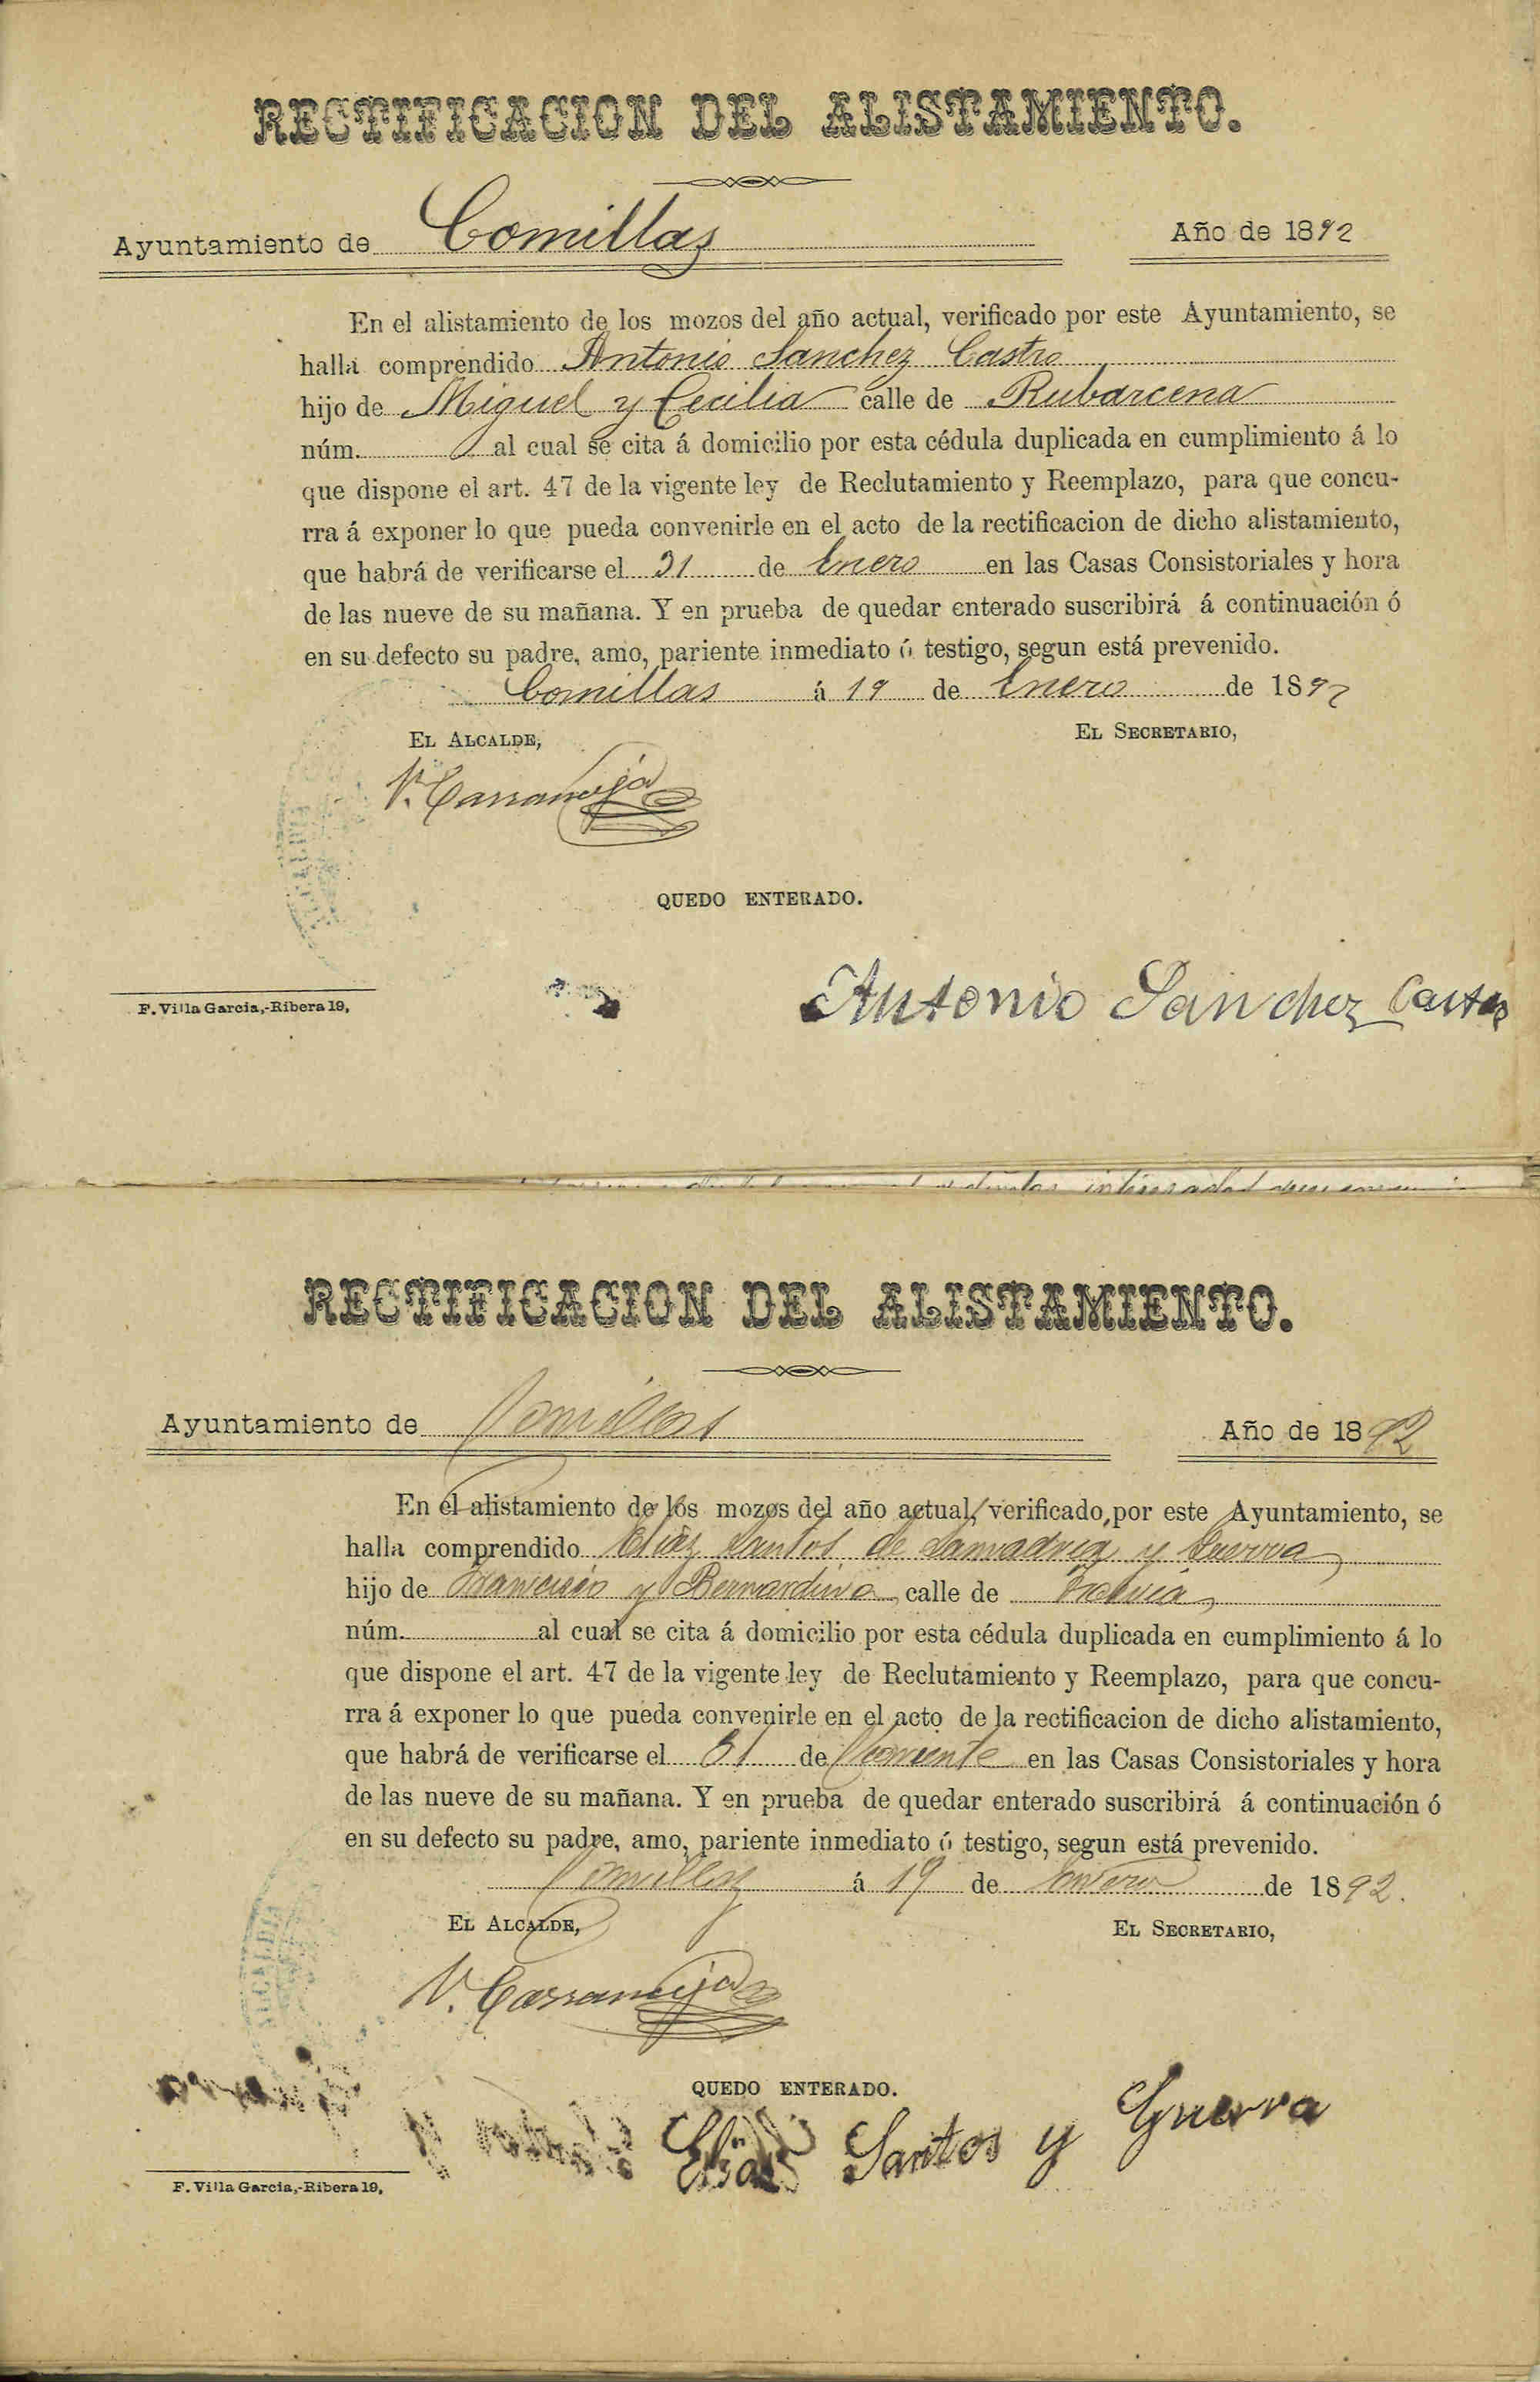 RECTIFICACION DEL ALISTAMIENTO.
Ayuntamiento de Comillas Año de 1892
En el alistamiento de los mozos del año actual, verificado por este Ayuntamiento, se
halla comprendido Antonio Sanchez Castro
hijo de Miguel y Cecilia calle de Rubarcena
núm. al cual se cita á domicilio por esta cédula duplicada en cumplimiento á lo
que dispone el art. 47 de la vigente ley de Reclutamiento y Reemplazo, para que concu-
rra á exponer lo que pueda convenirle en el acto de la rectificacion de dicho alistamiento,
que habrá de verificarse el 31 de Enero en las Casas Consistoriales y hora
de las nueve de su mañana. Y en prueba de quedar enterado suscribirá á continuación ó
en su defecto su padre, amo, pariente inmediato ó testigo, segun está prevenido.
Comillas á 19 de Enero de 1892
EL ALCALDE, EL SECRETARIO,
V. Carranceja
QUEDO ENTERADO.
Antonio Sanchez Castro
F. Villa Garcia,-Ribera 19,
RECTIFICACION DEL ALISTAMIENTO.
Ayuntamiento de Comillas Año de 1892
En el alistamiento de los mozos del año actual, verificado por este Ayuntamiento, se
halla comprendido Elias Santos de Lamadrid y Guerra
hijo de Francisco y Bernardina calle de
núm. al cual se cita á domicilio por esta cédula duplicada en cumplimiento á lo
que dispone el art. 47 de la vigente ley de Reclutamiento y Reemplazo, para que concu-
rra á exponer lo que pueda convenirle en el acto de la rectificacion de dicho alistamiento,
que habrá de verificarse el 31 de Corriente en las Casas Consistoriales y hora
de las nueve de su mañana. Y en prueba de quedar enterado suscribirá á continuación ó
en su defecto su padre, amo, pariente inmediato ó testigo, segun está prevenido.
Comillas á 19 de Enero de 1892.
EL ALCALDE, EL SECRETARIO,
V. Carranceja
QUEDO ENTERADO.
Elias Santos y Guerra
F. Villa Garcia,-Ribera 19,